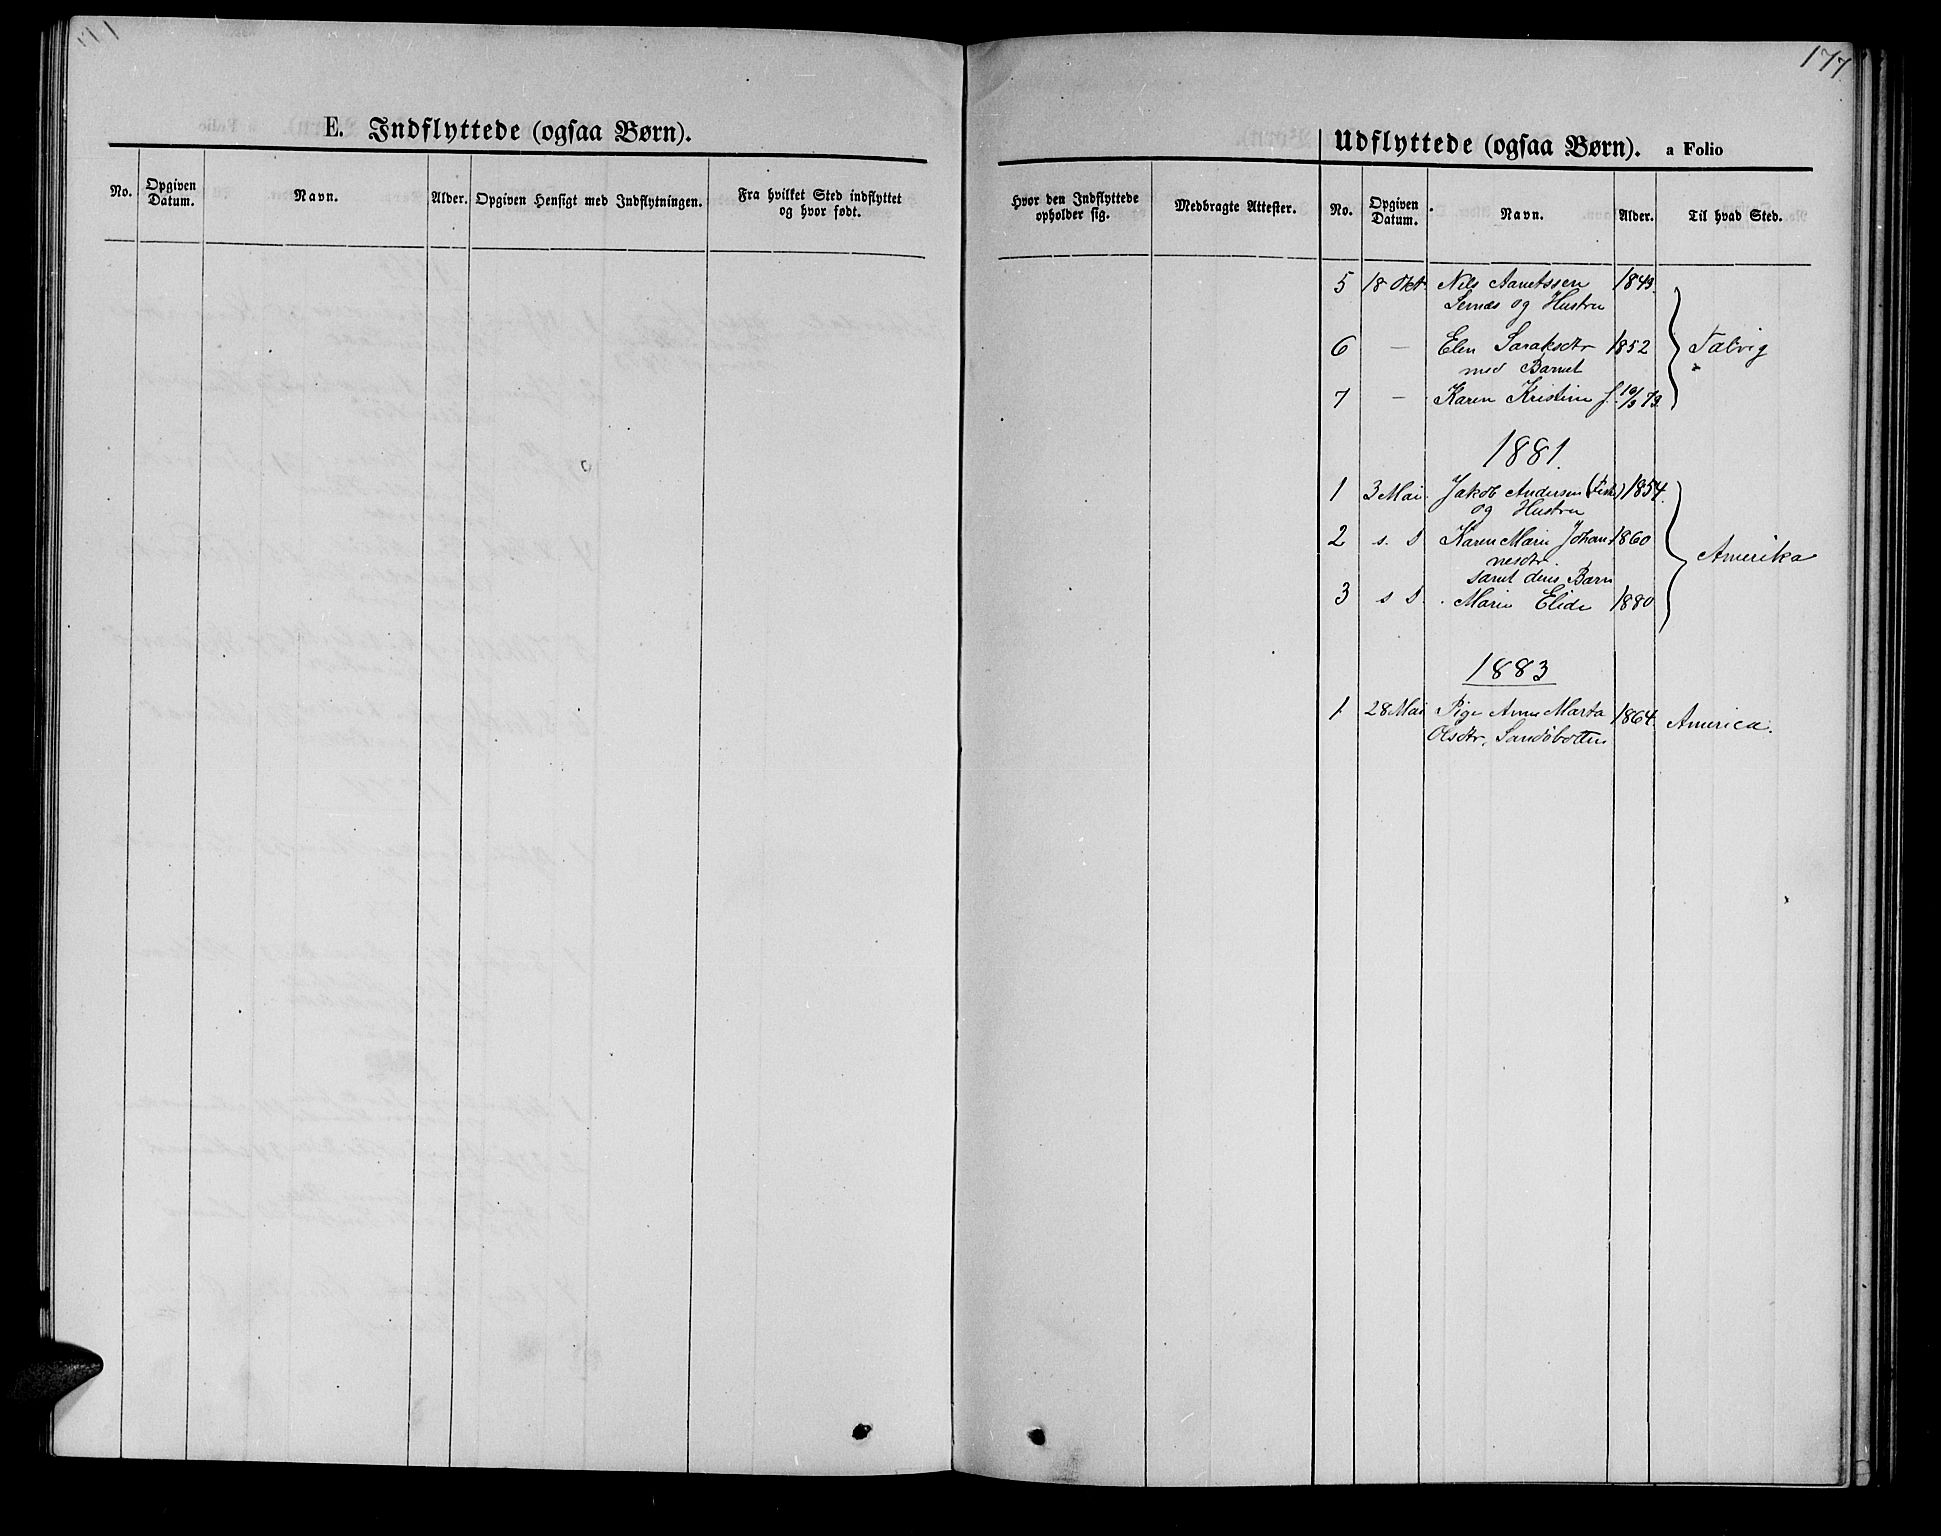 177.
E. Indflyttede (ogsaa Børn).
No.
Opgiven Datum.
Navn.
Alder.
Opgiven Hensigt med Indflytningen.
Fra hvilket Sted indflyttet
og hvor født.
Hvor den Indflyttede
opholder sig.
Medbragte Attester.
Udflyttede (ogsaa Børn). a Folio
No.
Opgiven Datum.
Navn.
Alder.
Til hvad Sted.
5 18 Okt. Nils Aanetssen 1849.
Lernæs og Hustru
6 — Elen Saraksdtr 1852 Talvig
med Barnet
7 — Karen Kristine f. 10/3 79.
1881.
1 3 Mai. Jakob Andersen 1854.
og Hustru
2 s. D Karen Marie Johan 1860
nesdtr. Amerika
samt deres Barn
3 s D. Marie Elide 1880
1883
1. 28 Mai Pige Anne Marta 1864. America.
Olsdtr, Sandøbotten